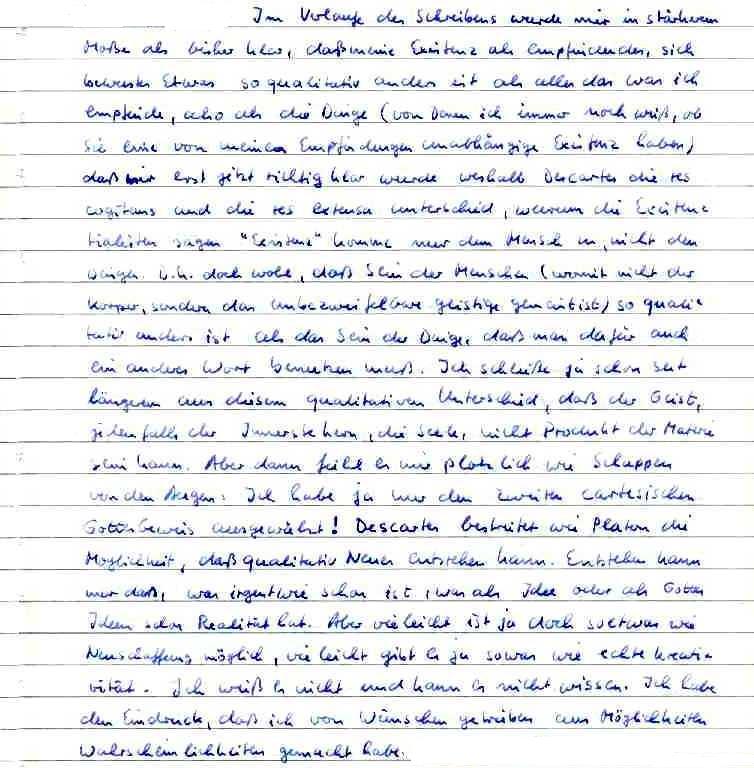 Im Verlaufe des Schreibens wurde mir in stärkerem
Maße als bisher klar, daß meine Existenz als empfindendes, sich
bewusstes Etwas so qualitativ anders ist als alles das was ich
empfinde, also als die Dinge (von Denen ich immer noch weiß, ob
sie eine von meinen Empfindungen unabhängige Existenz haben)
daß mir erst jetzt richtig klar wurde weshalb Descartes die res
cogitans und die res extensa unterscheid, warum die Existenz
tialisten sagen "Existenz" komme nur dem Mensch zu, nicht den
Dingen. D.h. doch wohl, daß Sein der Menschen (womit nicht der
Körper, sondern das unbezweifelbare geistige gemeint ist) so quali-
tativ anders ist als das Sein der Dinge, daß man dafür auch
ein anderes Wort benutzen muß. Ich schließe ja schon seit
längerem aus diesem qualitativen Unterschied, daß der Geist,
jedenfalls der Innerste Kern, die Seele, nicht Produkt der Materie
sein kann. Aber dann fiel es mir plötzlich wie Schuppen
von den Augen: Ich habe ja nur den zweiten cartesischen
Gottesbeweis ausgewählt! Descartes bestreitet wie Platon die
Möglichkeit, daß qualitativ Neues entstehen kann. Entstehen kann
nur daß, was irgentwie schon ist, was als Idee oder als Gottes
Ideen schon Realität hat. Aber vieleicht ist ja doch soetwas wie
Neuschaffung möglich, vieleicht gibt es ja sowas wie echte Kreati-
vität. Ich weiß es nicht und kann es nicht wissen. Ich habe
den Eindruck, daß ich von Wünschen getrieben aus Möglichkeiten
Wahrscheinlichkeiten gemacht habe.